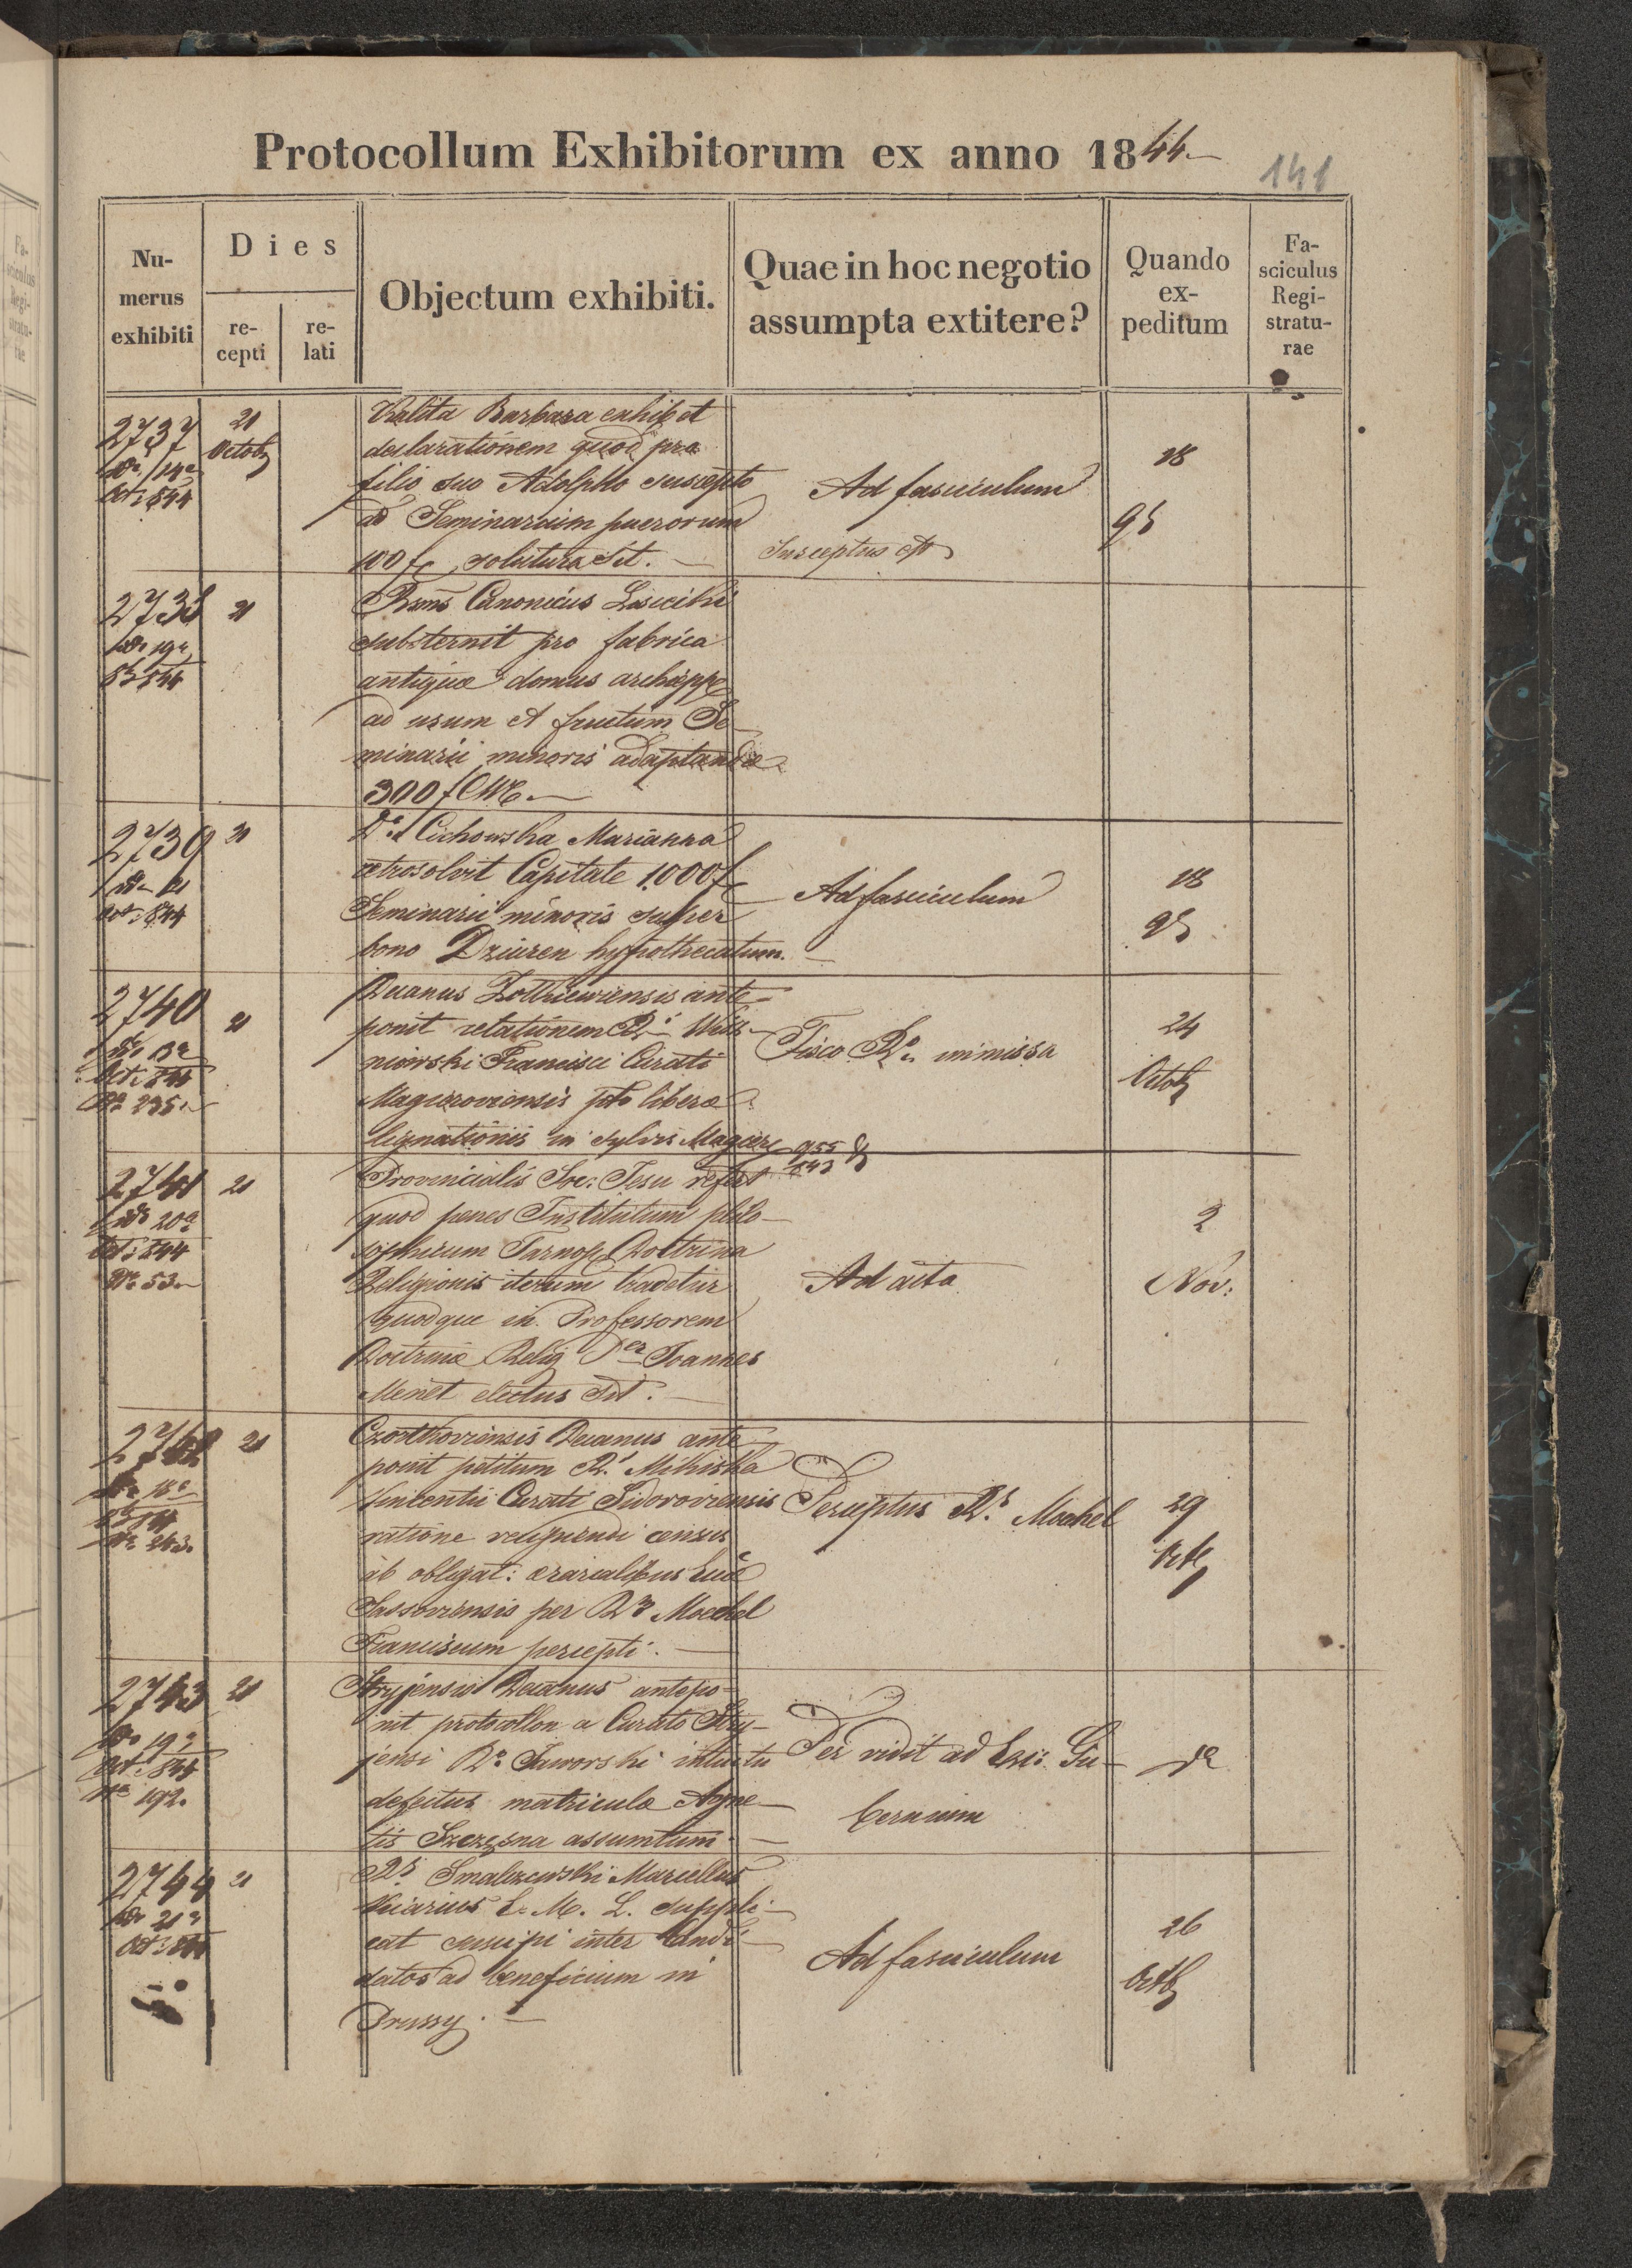 Protocollum Exhibitorum ex anno 1844.
141
Numerus exhibiti
Dies
recepti
relati
Objectum exhibiti.
Quae in hoc negotio assumpta extitere?
Quando expeditum
Fasciculus Registraturae
2737
14a
Oct: 844
21
Octob
Barbara exhibet
declarationem quod pro
filio suo Adolpho suscepto
ad Seminarium puerorum
100 f solutura sit. —
Ad fasciculum
Susceptus est
18
2738
19a
844
21
Canonicus
substernit pro fabrica
antiquae domus archieppo
ad usum et fructum Se-
minarii minoris adaptandae
300 f CM. —
2739
Oct: 844
21
Cichowska Marianna
retrosolvit Capitale 1000 f
Seminarii minoris super
bono Dziuren hypothecatum. —
Ad fasciculum
18
2740
13a
Oct: 844
No 235.
21
Decanus Zolkiewiensis ante-
ponit relationem
Francisci Curati
Magieroviensis pto liberae
lignationis in sylvis Magier
Fisco immissa
24
Octob
2741
20a
Oct: 844
No 53.
21
Provincialis Soc: Jesu refert
quod penes Institutum philo-
sophicum Tarnop Doctrina
Religionis iterum tradetur
quodque in Professorem
Doctrinae Relig Per Joannes
Menet electus sit. —
955
843
Ad acta
2
Nov:
2742
18a
No 243.
21
Czortkoviensis Decanus ante-
ponit petitum Mikiska
Vincentii Curati Sidoroviensis
ratione census
ab obligat: aerarialibus
Sassoviensis per Moechel
Franciscum percepti. —
Moehel
29
Octb
2743
19a
Oct: 844
No 192.
21
Stryjensis Decanus antepo-
nit protocollon a Curato Stry-
jensi Jaworski intuitu
defectus matricula Agne-
tis Szczęsna assumtum. —
Per vidit ad Exc: Gu-
bernium
2744
21a
Oct: 844
21
Smalzewski Marcellus
Vicarius E. M. L. suppli-
cat suscipi inter Candi-
datos ad beneficium in
Prussy. —
Ad fasciculum
26
Octb